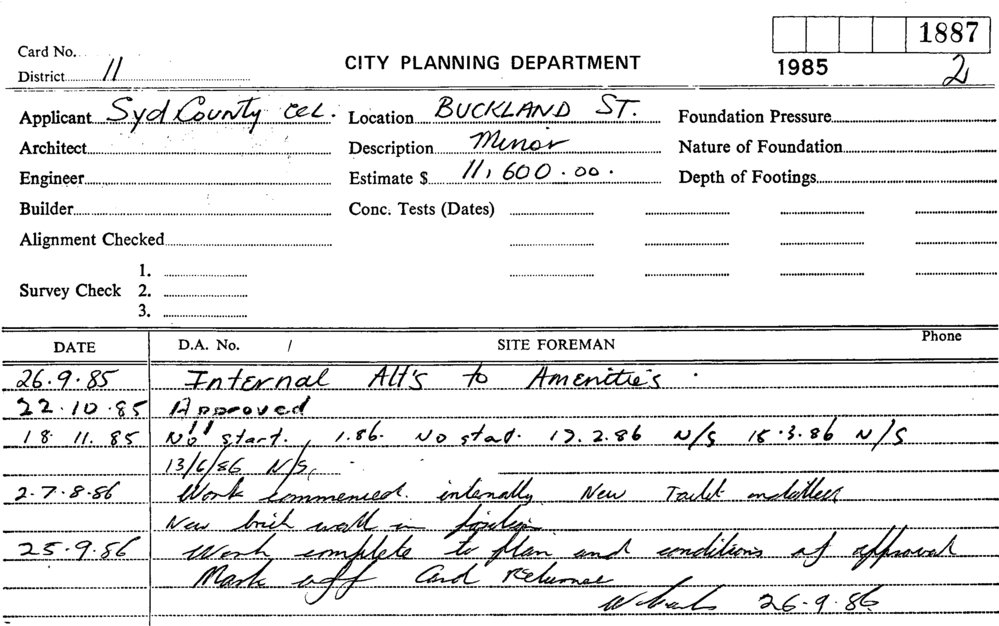 1887
Card No.
District 11
CITY PLANNING DEPARTMENT
1985 2
Applicant Syd County Location BUCKLAND ST. Foundation Pressure
Architect Description Minor Nature of Foundation
Engineer Estimate $ 11,600.00. Depth of Footings
Builder Conc. Tests (Dates)
Alignment Checked
1.
Survey Check 2.
3.
DATE D.A. No. / SITE FOREMAN Phone
26.9.85 Internal Alt's to Amenitie's.
22.10.85 Approved
18.11.85 No start. 1.86. No start. 17.2.86 N/S 18.3.86 N/S
13/6/86 N/S.
2-7.8.86 Work commenced internally New Toilet
New brick wall in position
25.9.86 Work complete to plan and conditions of approval
Mark off Card Returned
26-9-86